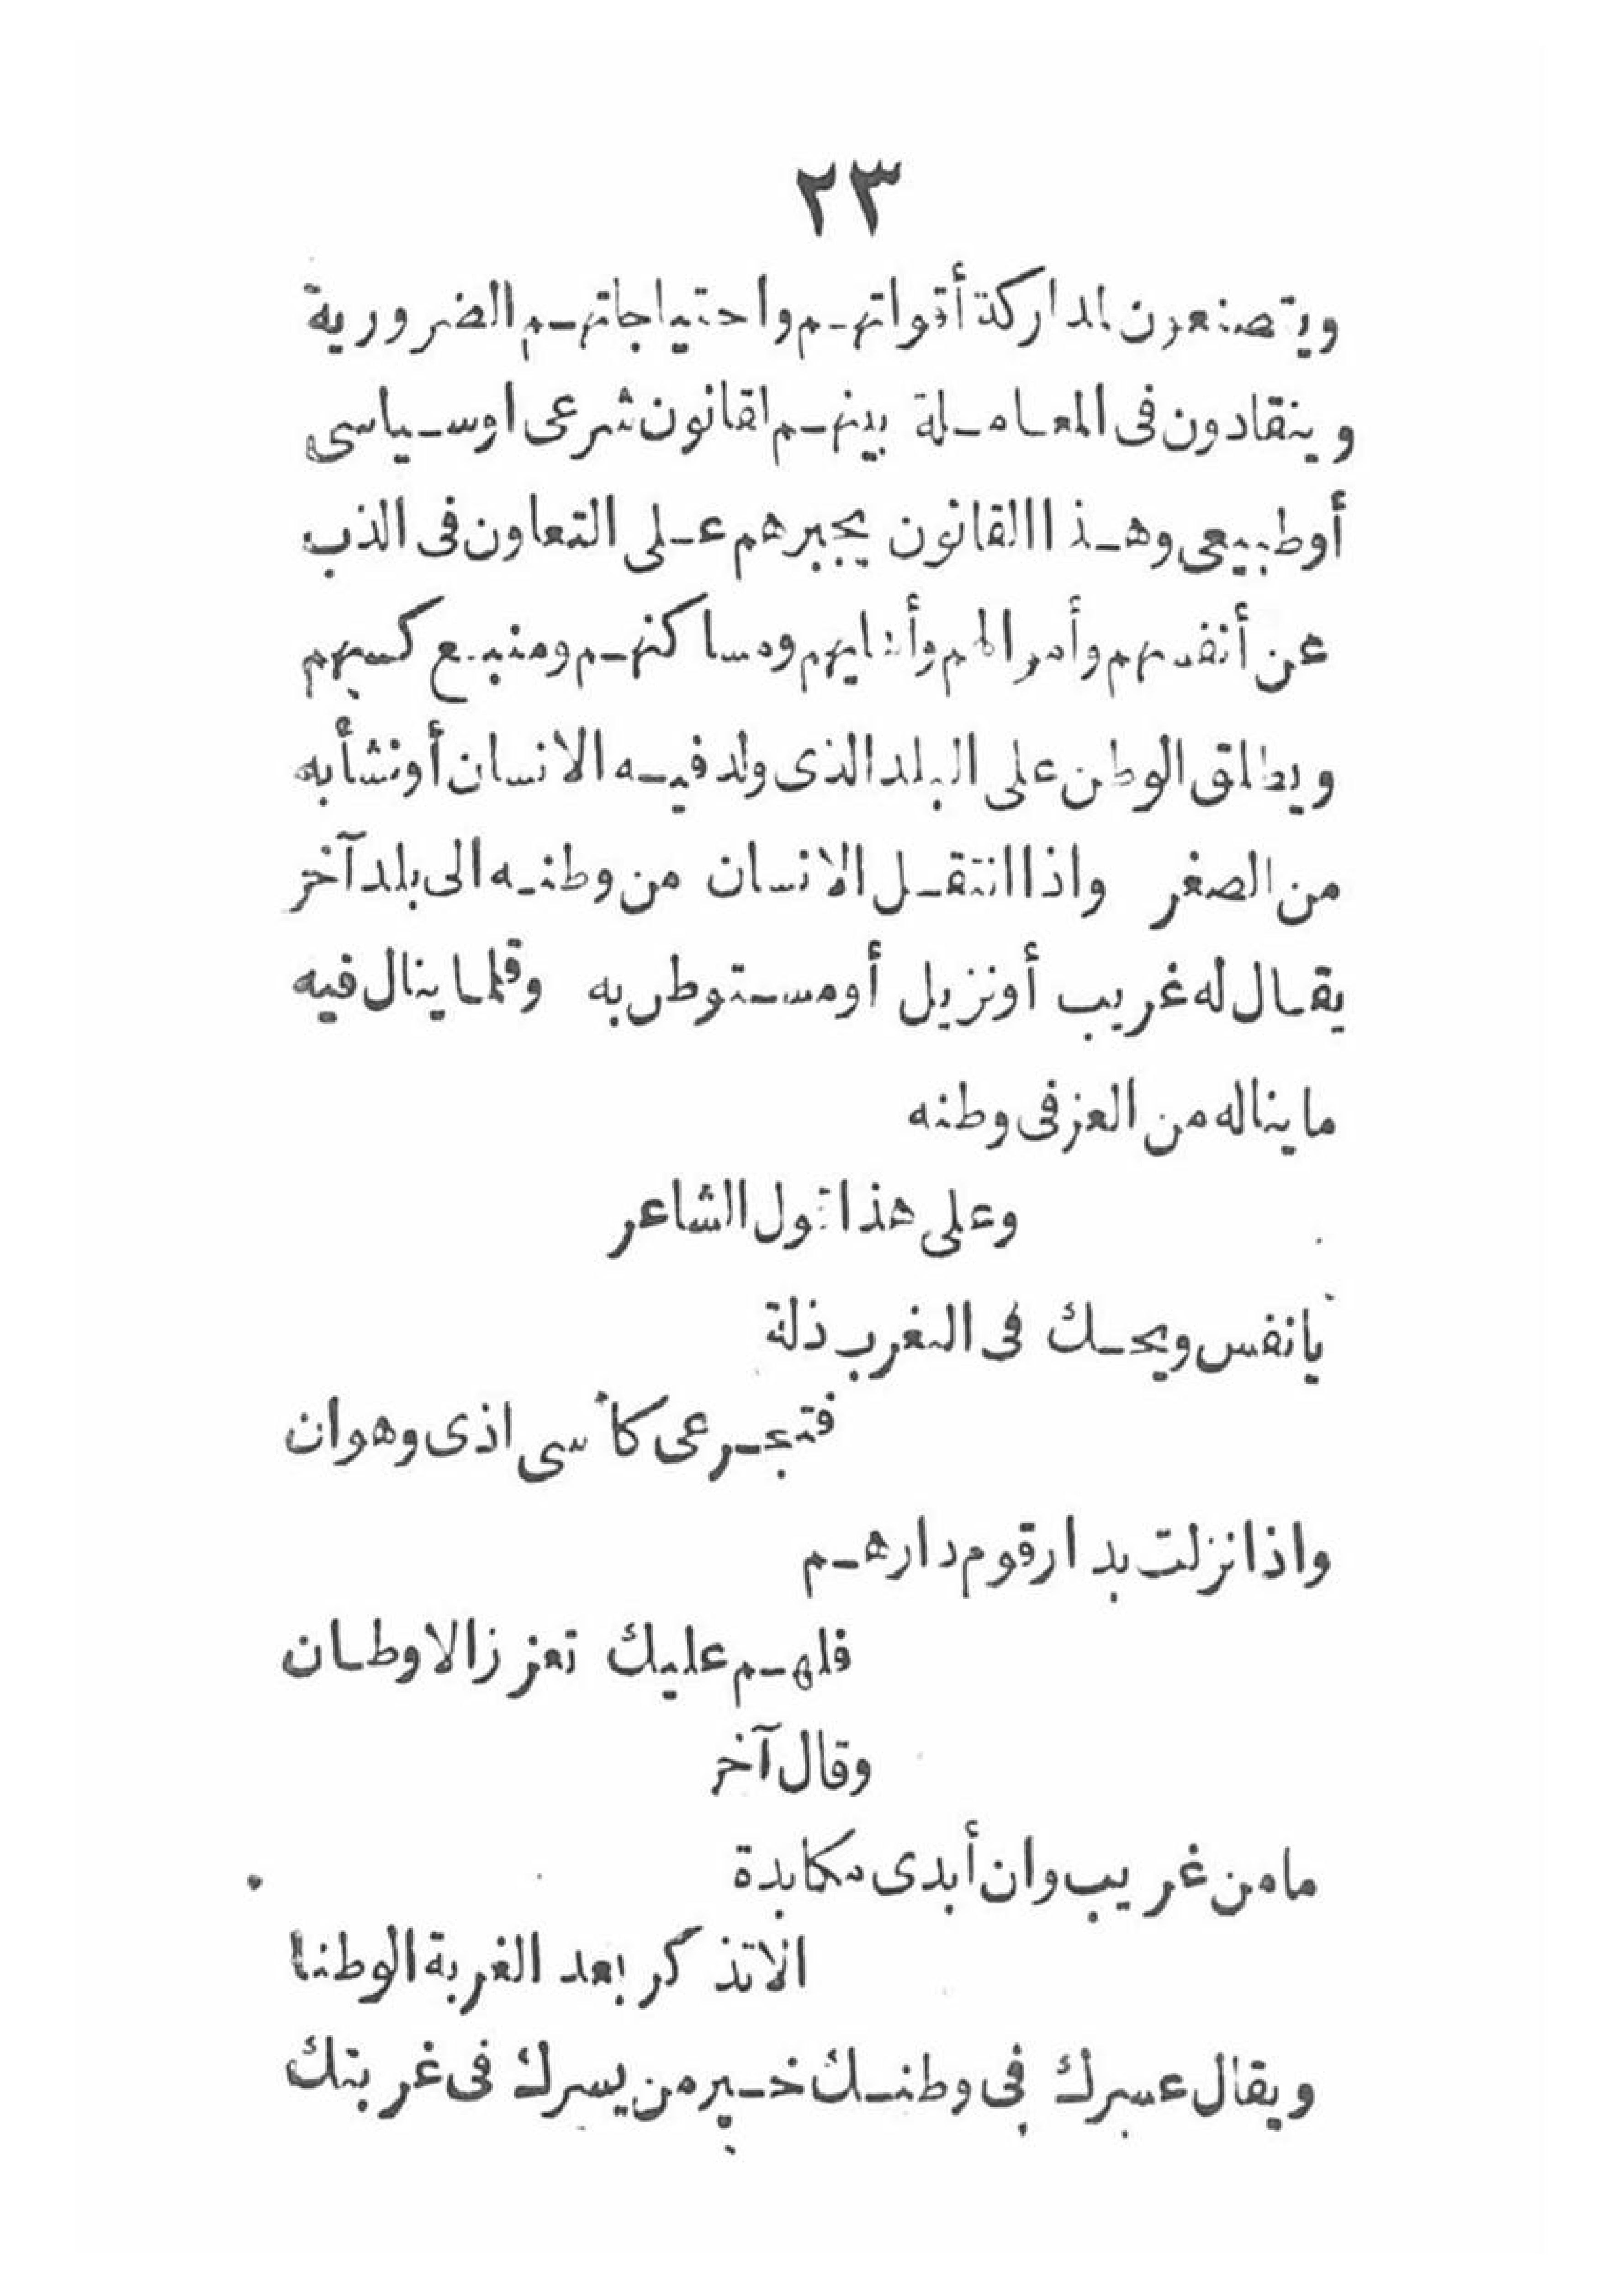 ٢٣
ويتصنعون لمداركة أقواتهم واحتياجاتهم الضرورية
وينقادون فى المعاملة بينهم لقانون شرعى اوسياسى
أوطبيعى وهذا القانون يجبرهم على التعاون فى الذب
عن أنفسهم وأموالهم وأبنائهم ومساكنهم ومنبع كسبهم
ويطلق الوطن على البلد الذى ولد فيه الانسان أونشأ به
من الصغر واذا انتقل الانسان من وطنه الى بلد آخر
يقال له غريب أونزيل أومستوطن به وقلما ينال فيه
ما يناله من العز فى وطنه
وعلى هذا قول الشاعر
يانفس ويحك فى التغرب ذلة
فتجرعى كأسى اذى وهوان
واذا نزلت بدار قوم دارهم
فلهم عليك تعزز الاوطان
وقال آخر
مامن غريب وان أبدى مكابدة
الاتذكر بعد الغربة الوطنا
ويقال عسرك فى وطنك خير من يسرك فى غربتك